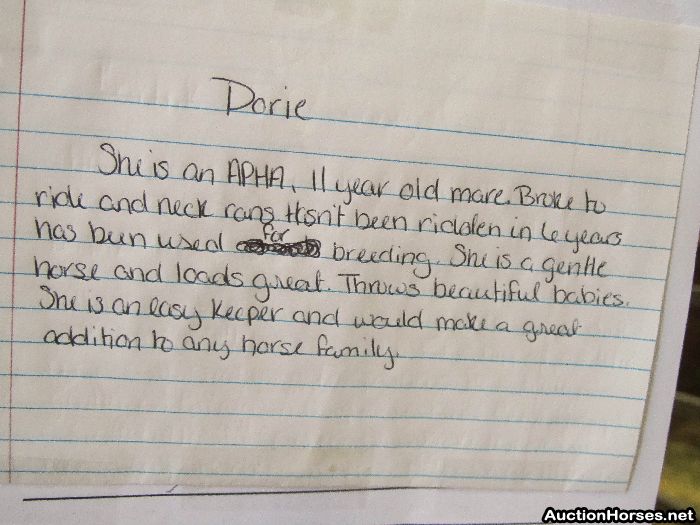 Dorie
She is an APHA, 11 year old mare. Broke to
ride and neck rans Hasn't been ridden in 6 years
has been used for breeding. She is a gentle
horse and loads great. Throws beautiful babies.
She is an easy keeper and would make a great
addition to any horse family.
AuctionHorses.net